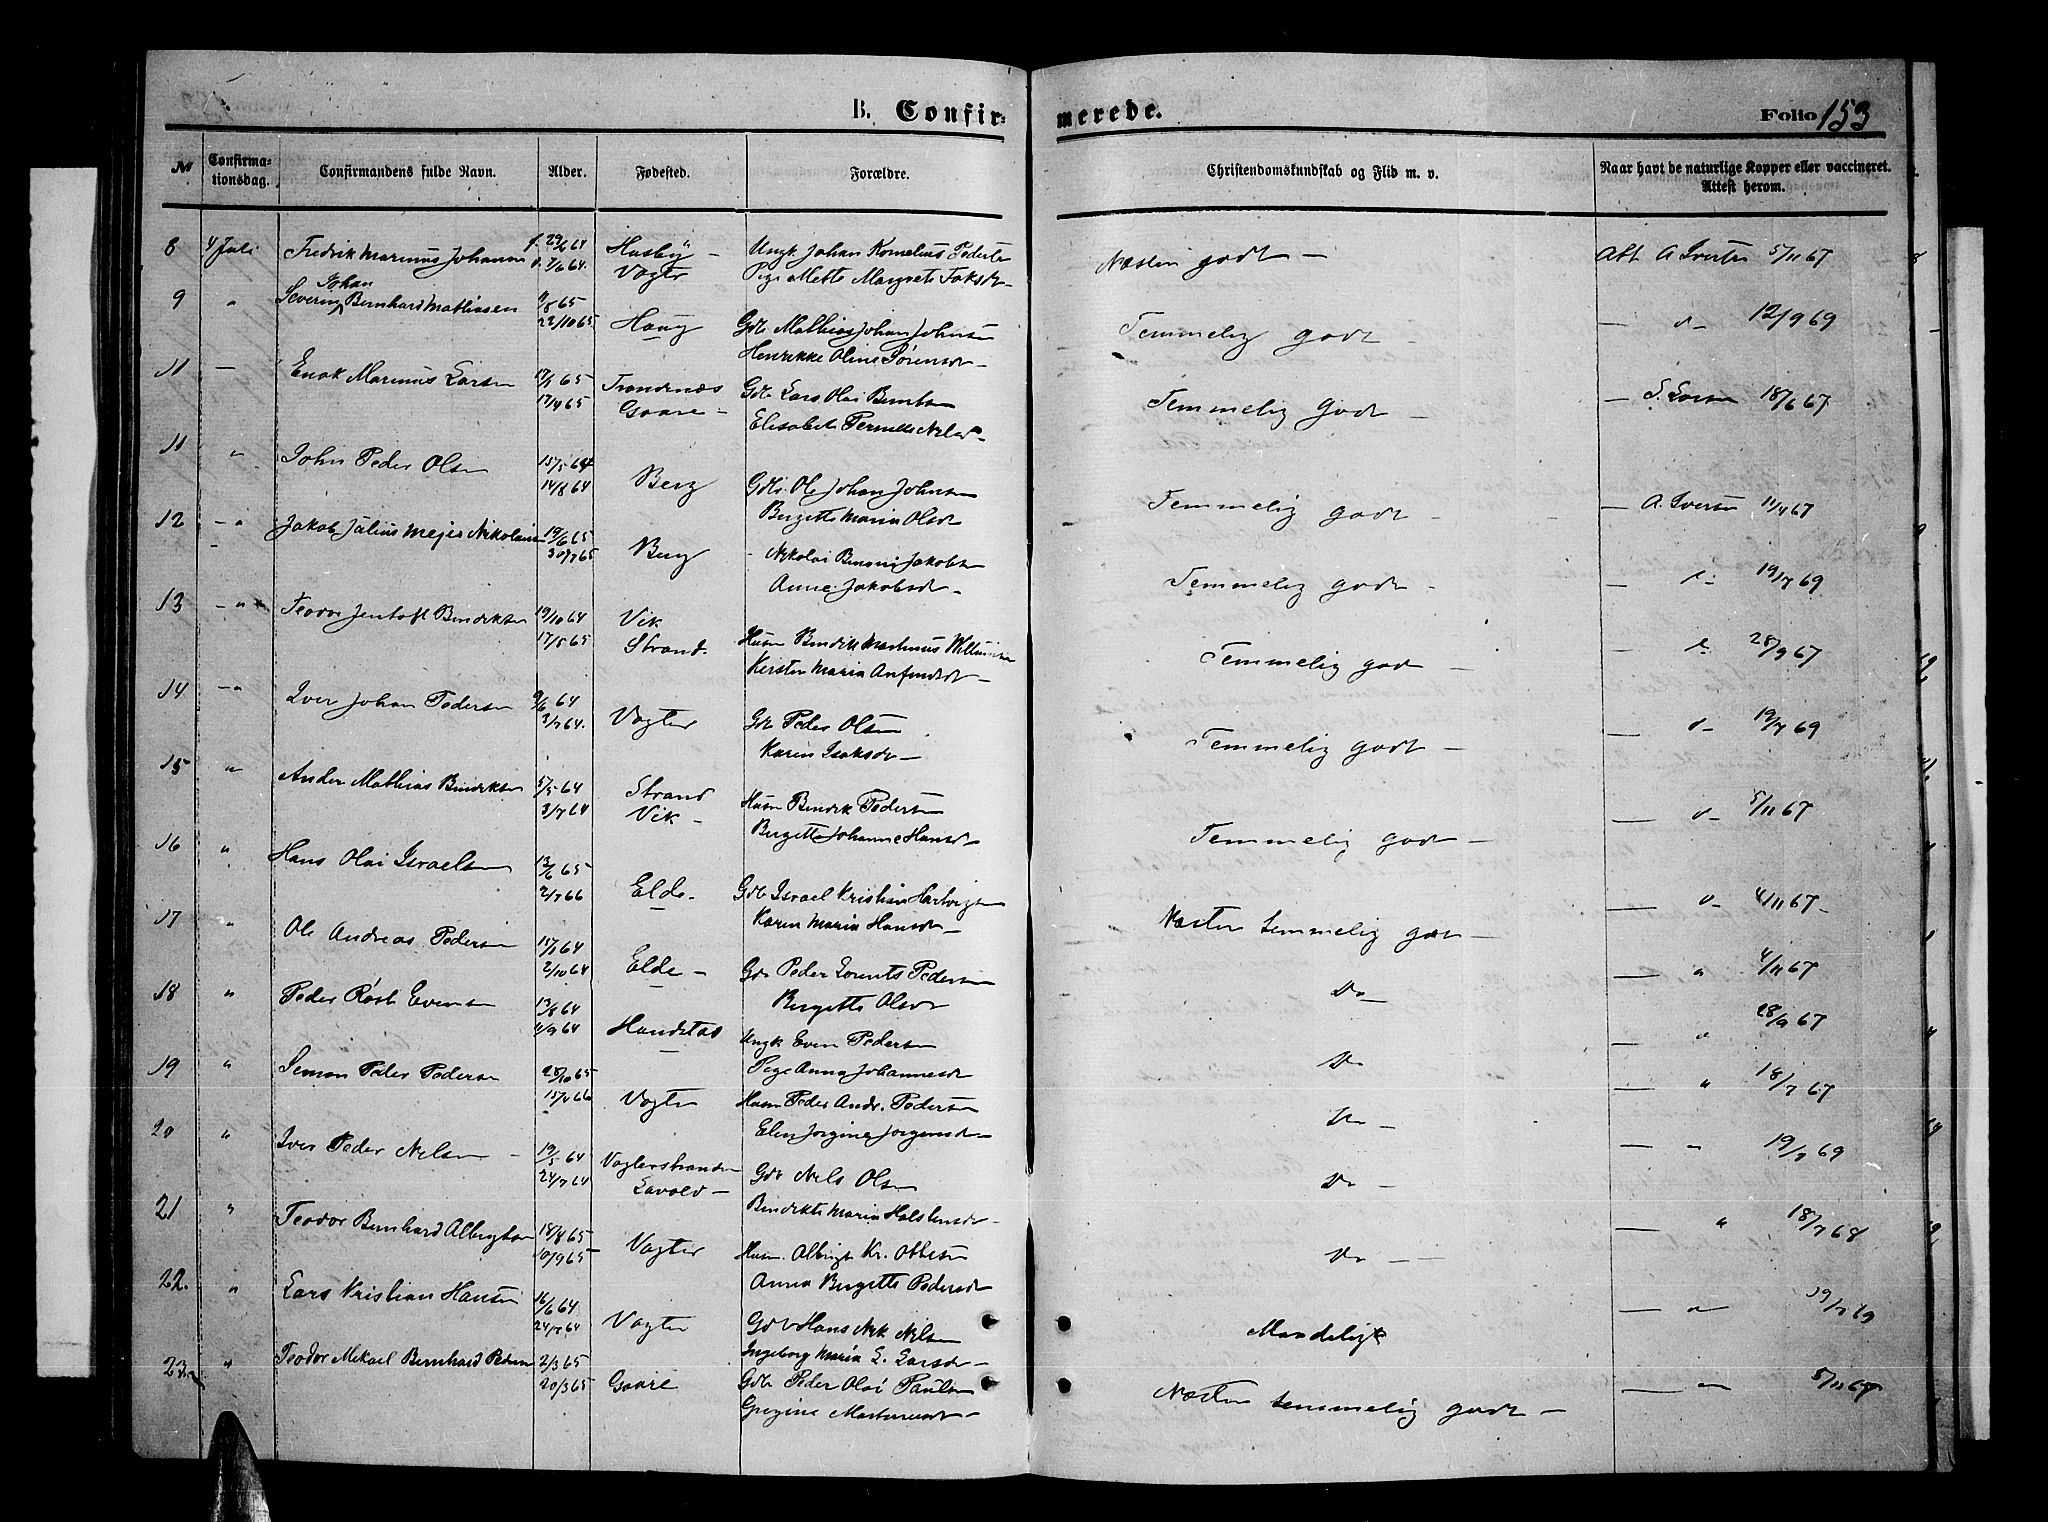 B. Confirmerede. Folio 153
№ Confirmationsdag. Confirmandens fulde Navn. Alder. Fødested. Forældre. Christendomskundskab og Flid m. v. Naar havt de naturlige Kopper eller vaccineret. Attest herom.
8 4 Juli Fredrik Marinus Johansen f. 29/4 64 Husby - Ungk Johan Kornelius Peders Næsten godt - Att A Iversen 5/11 67
d. 7/6 64. Vogter Pige Mette Margrete
9 " Severin Johan Bernhard Mathiasen 9/8 65
22/10 65 Haug Gdb Mathias Johan Johnsen Temmelig godt - — d- 12/9 69
Henrikke Oline Sørensdr -
11 — Enok Marinus Larsen 17/1 65 Trondenæs Gdb Lars Olai Berntsen Temmelig Godt - — S. Larsen 18/6 67
17/4 65 Gaare - Elisabet Pernille Nelsdr -
11 " John Peder Olsen 15/5 64
14/8 64 Berg Gdb. Ole Johan Johnsen Temmelig godt - — A. Iversen 11/4 67
Bergette Maria Olsdr
12 - " Jakob Julius Mejer Nikolaisen 19/6 65
30/7 65 Berg - Nikolai Benoni Jakobsen Temmelig godt - — d- 19/7 69
Anne Jakobsdr -
13 - " Teodor Jentoft Bendiksen 19/10 64 Vik
17/5 65 Strand. Husm Bendik Martinus Temmelig god - — d- 28/9 67
Kersten Maria Anfindsdr -
14 - " Iver Johan Pedersen 9/6 64
3/7 64. Vogter Gdb Peder Olsen Temmelig godt - — d- 19/7 69
Karen Isaksdr -
15 " Anders Mathias Bendiksen 5/5 64 Strand
3/7 64 Vik - Husm Bendik Pedersen Temmelig godt - — d- 5/11 67
Bergette Johanne Hansdr -
16 " Hans Olai Israelsen 13/6 65
2/7 66 Elde - Gdb Israel Kristian Hartvigsen Næsten temmelig godt - — d- 4/11 67-
Karen Maria Hansdr -
17 " Ole Andreas Pedersen 15/ 64
2/10 64 Elde - Gdb Peder Lorents Pedersen Do — " 4/11 67
Bergette Olsdr
18 " Peder Røst Evensen 13/8 64
4/9 64 Haudstad Ungk Even Pedersen Do — d 28/9 67
Pige Anna Johannesdr
19 " Simon Peder Pedersen 28/10 65
15/ 66 Vogter Husm Peder Andr. Pedersen Do - — " 18/7 67
Elen Jørgine Jørgensdr -
20 " Iver Peder Nelsen - 19/5 64 Vogterstranden
24/7 64 Lavold - Gdb Nels Olsen Do - — " 19/7 69
Bendikte Maria Holstensdr -
21 " Teodor Bernhard Albrigtsen 18/8 65
10/9 65 Vogter Husm. Albrigt Kr. Ottesen Do - — " 18/7 68
Anna Bergette Pedersdr
22. " Lars Kristian Hansen 16/6 64
24/7 64 Vogter Gdb Hans Nik Nilsen Maadeligt — " 19/7 69
Ingeborg Maria L. Larsdr -
23. " Teodor Mikael Bernhard Pedersen 2/3 65
20/3 65 Gaare Gdb Peder Olai Paulsen Næsten temmelig godt - — " 5/11 67
Gregine Martinusdr -